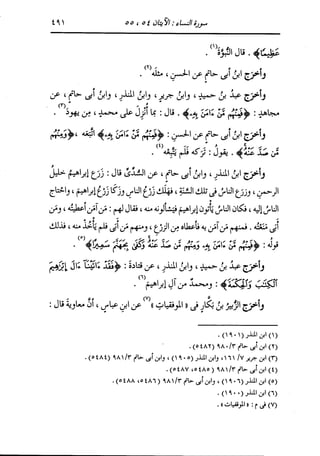 سورة النساء: الآيتان ٥٤، ٥٥ ٤٩١
عَظِيمًا﴾. قال: النُّبوَّةُ(١).
وأخرَج ابنُ أبى حاتمٍ عن الحسنِ، مثلَه(٢).
وأخرَج عبدُ بنُ حميدٍ، وابنُ جريرٍ، وابنُ المنذرِ، وابنُ أبى حاتمٍ، عن
مجاهدٍ: ﴿فَمِنْهُم مَّنْ ءَامَنَ بِهِ﴾. قال: بما أُنزِل على محمدٍ، مِن يهودَ(٣).
وأخرَج ابنُ أبى حاتمٍ عن الحسنِ: ﴿فَمِنْهُم مَّنْ ءَامَنَ بِهِ﴾: اتَّبَعه، ﴿وَمِنْهُم
مَّن صَدَّ عَنْهُ﴾. يقولُ: ترَكه فلم يَتَّبِعْه(٤).
وأخرَج ابنُ المنذرِ، وابنُ أبى حاتمٍ، عن السُّدِّىِّ قال: زرَع إبراهيمُ خليلُ
الرحمنِ، وزرَع الناسُ فى تلك السَّنةِ، فهلَك زرْعُ الناسِ وزكَا زرْعُ إبراهيمَ، واحتاج
الناسُ إليه، فكان الناسُ يأتون إبراهيمَ فيَسألونه منه، فقال لهم: مَن آمَن أعطَيتُه، ومَن
أبَى منَعتُه. فمنهم مَن آمَن به فأعطاه مِن الزرعِ، ومنهم مَن أبَى فلم يأخُذْ منه، فذلك
قولُه: ﴿فَمِنْهُم مَّنْ ءَامَنَ بِهِ وَمِنْهُم مَّن صَدَّ عَنْهُ وَكَفَى بِجَهَنَّمَ سَعِيرًا﴾(٥).
وأخرَج عبدُ بنُ حميدٍ، وابنُ المنذرِ، عن قتادةَ: ﴿فَقَدْ ءَاتَيْنَا ءَالَ إِبْرَاهِيمَ
الْكِتَابَ وَالْحِكْمَةَ﴾: ومحمدٌ مِن آلِ إبراهيمَ(٦).
وأخرَج الزُّبيرُ بنُ بكَّارٍ فى «الموفقياتِ»(٧) عن ابنِ عباسٍ، أنَّ معاويةَ قال:
(١) ابن المنذر (١٩٠١).
(٢) ابن أبى حاتم ٩٨٠/٣ (٥٤٨٢).
(٣) ابن جرير ١٦١/٧، وابن المنذر (١٩٠٥)، وابن أبى حاتم ٩٨١/٣ (٥٤٨٤).
(٤) ابن أبى حاتم ٩٨١/٣ (٥٤٨٥، ٥٤٨٧).
(٥) ابن المنذر (١٩٠٦)، وابن أبى حاتم ٩٨١/٣ (٥٤٨٦، ٥٤٨٨).
(٦) ابن المنذر (١٩٠٠).
(٧) فى م: «الموفقيات».